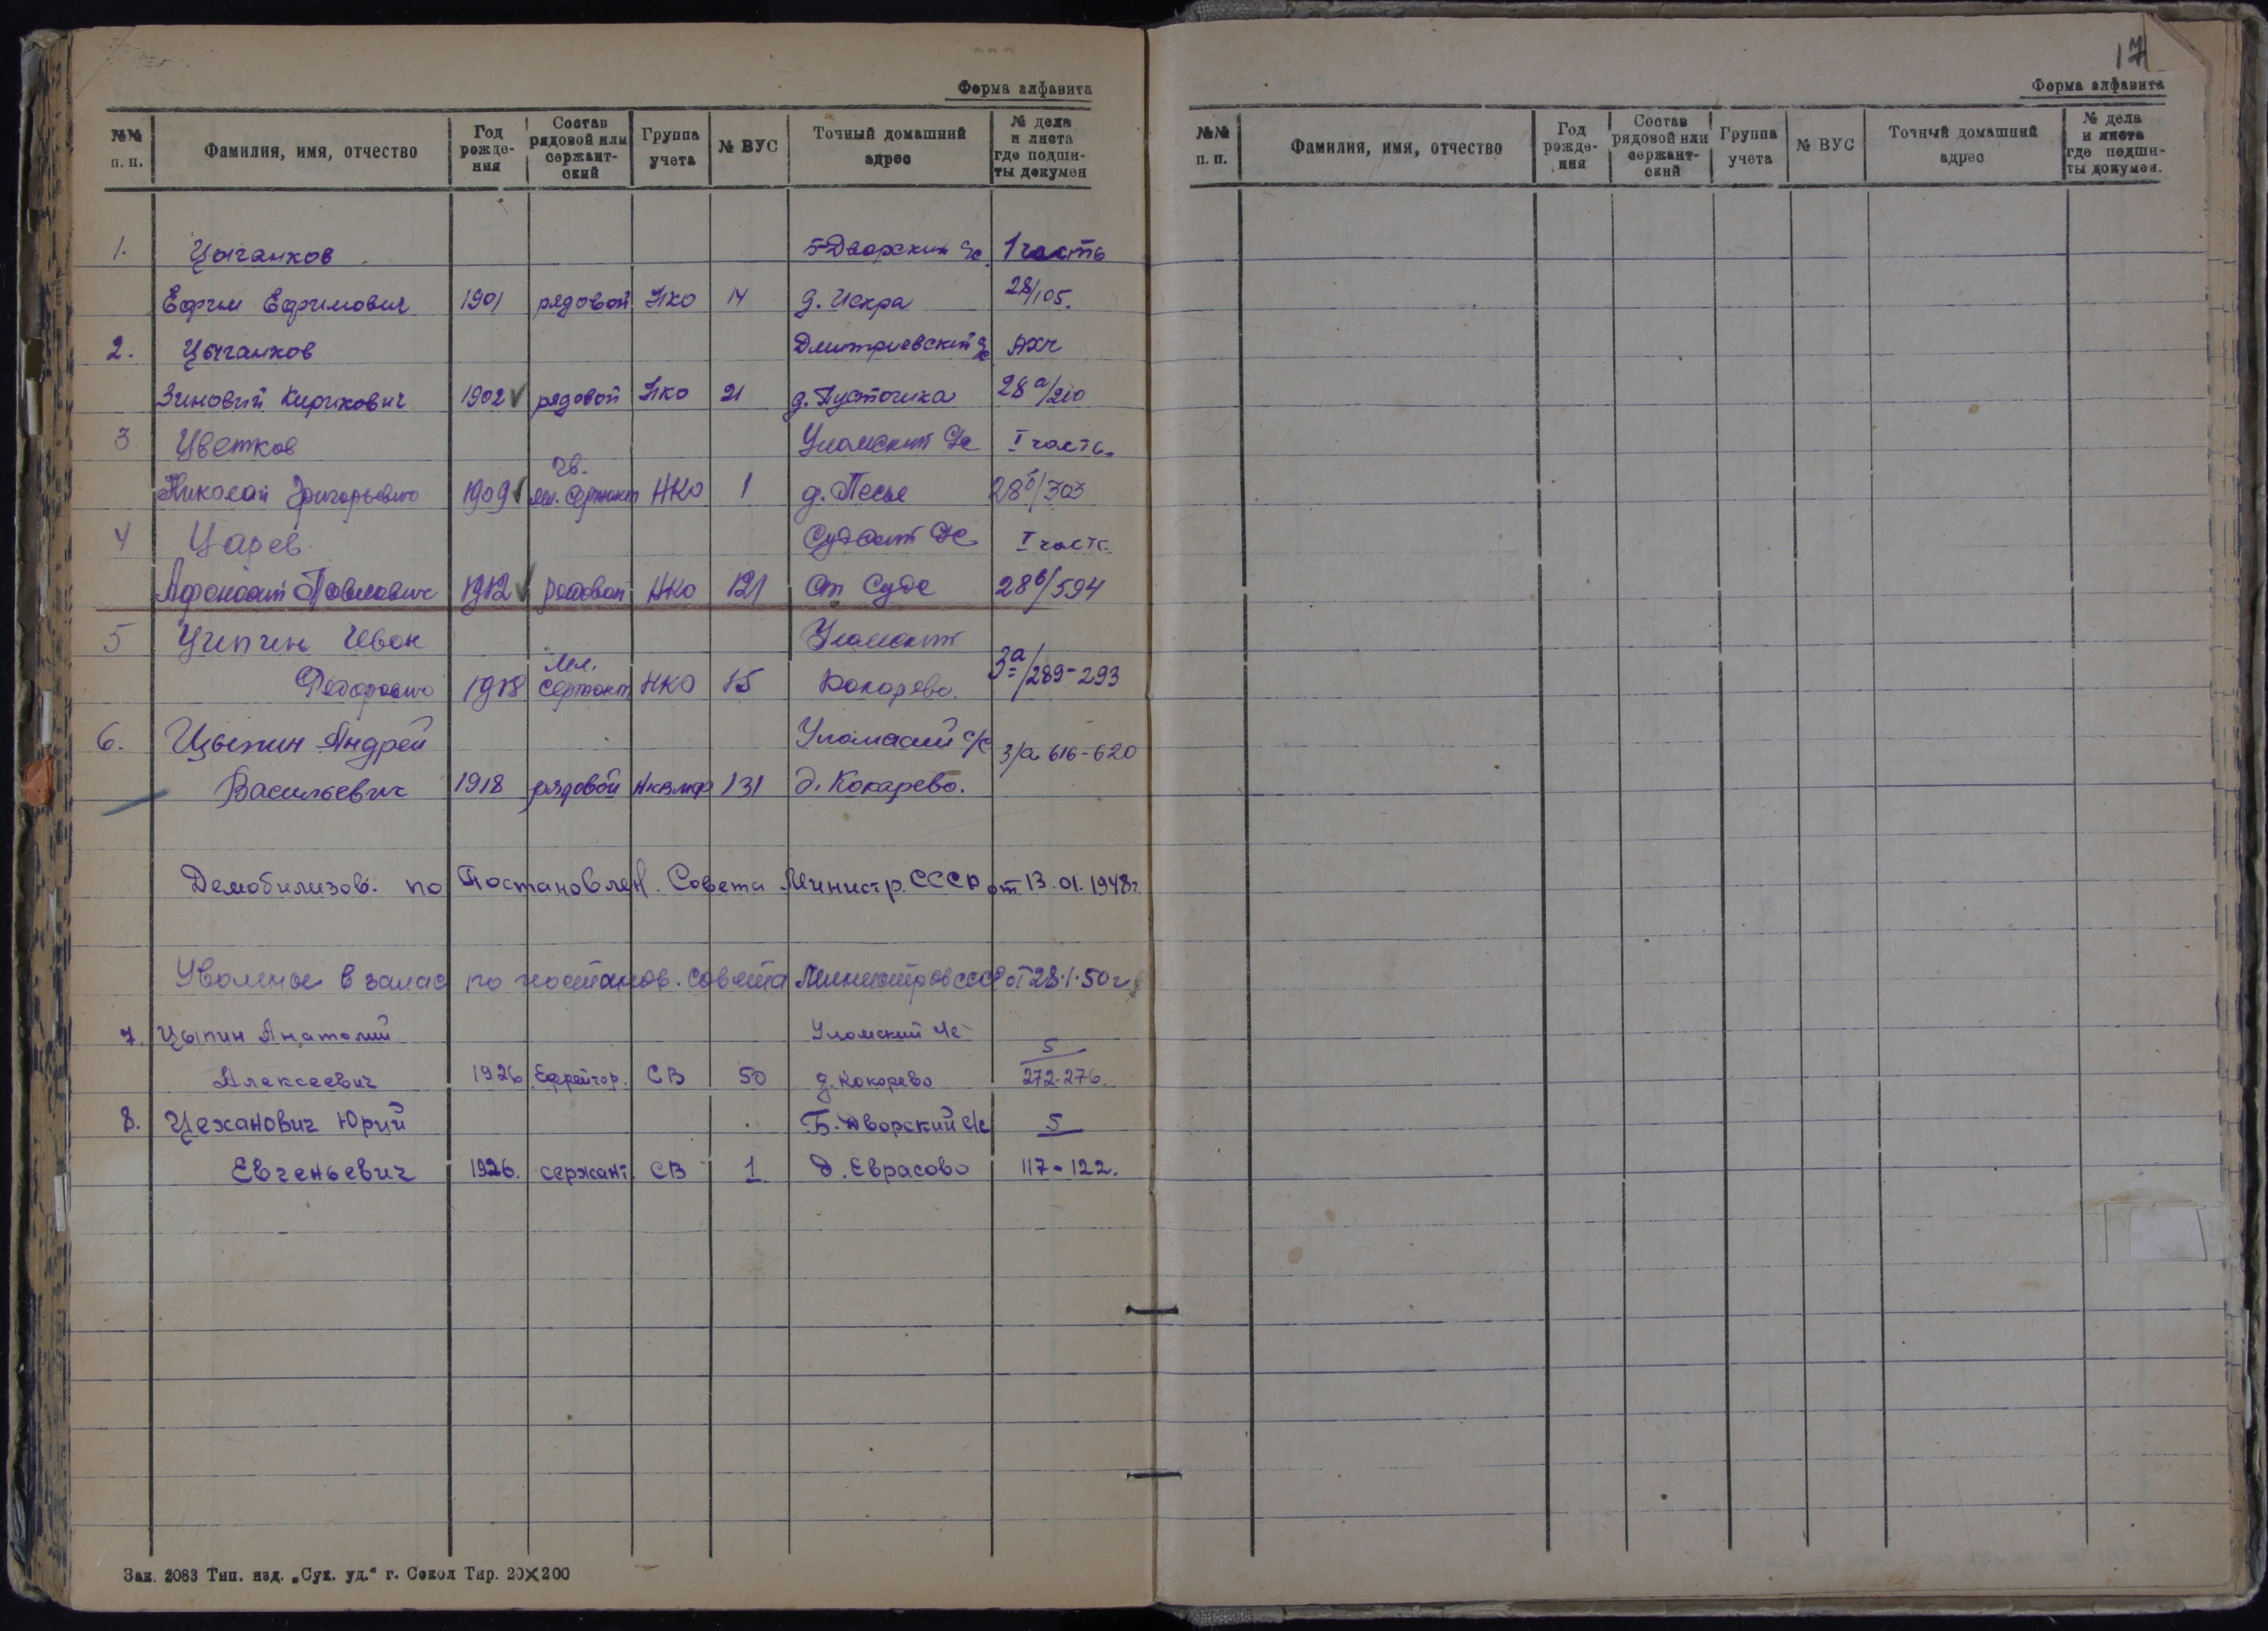 Форма алфавита
№№ п. п. Фамилия, имя, отчество Год рожде-ния Состав рядовой или сержант-ский Группа учета № ВУС Точный домашний адрес № дела и листа где подши-ты докумен
1. Цыганков Б-Дворский с/с 1 часть
Ефим Ефимович 1901 рядовой НКО 14 д. Искра 28/105.
2. Цыганков Дмитриевский с/с АХЧ
Зиновий Кирикович 1902 рядовой НКО 21 д. Пусточка 28а/210
3 Цветков Уломский с/с I часть.
гв.
Николай Григорьевич 1909 мл. сержант НКО 1 д. Песье 28б/303
4 Царев Судский с/с I часть
Афанасий Павлович 1912 рядовой НКО 121 ст Суда 28в/594
5 Ципин Иван Уломский
мл.
Федорович 1918 сержант НКО 15 Кокорево. 3а/289-293
6. Цыпин Андрей Уломский с/с 3/а 616-620
Васильевич 1918 рядовой НКВМФ 131 д. Кокарево.
Демобилизов. по Постановлен. Совета Министр. СССР от 13.01.1948г.
Уволеные в запас по постанов. совета Министров СССР от 28.1.50г
7. Цыпин Анатолий Уломский с/с 5
Алексеевич 1926 Ефрейтор. СВ 50 д. Кокорево 272-276.
8. Цеханович Юрий Б. Дворский с/с 5
Евгеньевич 1926. сержант. СВ 1 д. Еврасово 117-122.
Зак. 2083 Тип. изд. „Сух. уд.“ г. Сокол Тир. 20×200
17
Форма алфавита
№№ п. п. Фамилия, имя, отчество Год рожде-ния Состав рядовой или сержант-ский Группа учета № ВУС Точный домашний адрес № дела и листа где подши-ты докумен.